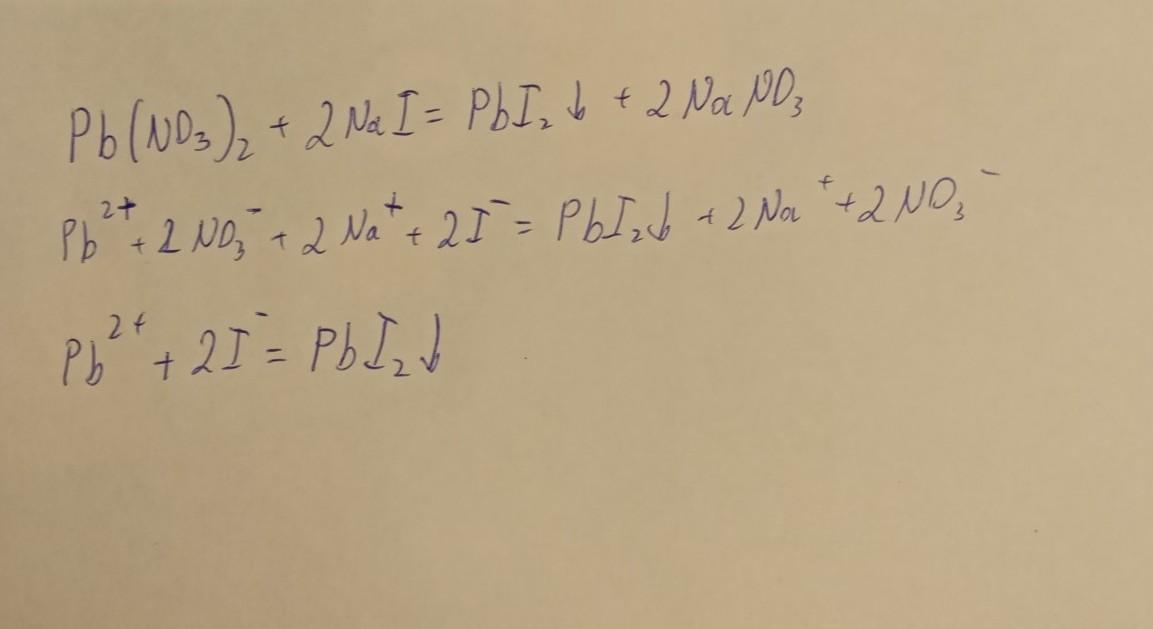 Pb(NO₃)₂ + 2NaI = PbI₂↓ + 2NaNO₃
Pb²⁺ + 2NO₃⁻ + 2Na⁺ + 2I⁻ = PbI₂↓ + 2Na⁺ + 2NO₃⁻
Pb²⁺ + 2I⁻ = PbI₂↓